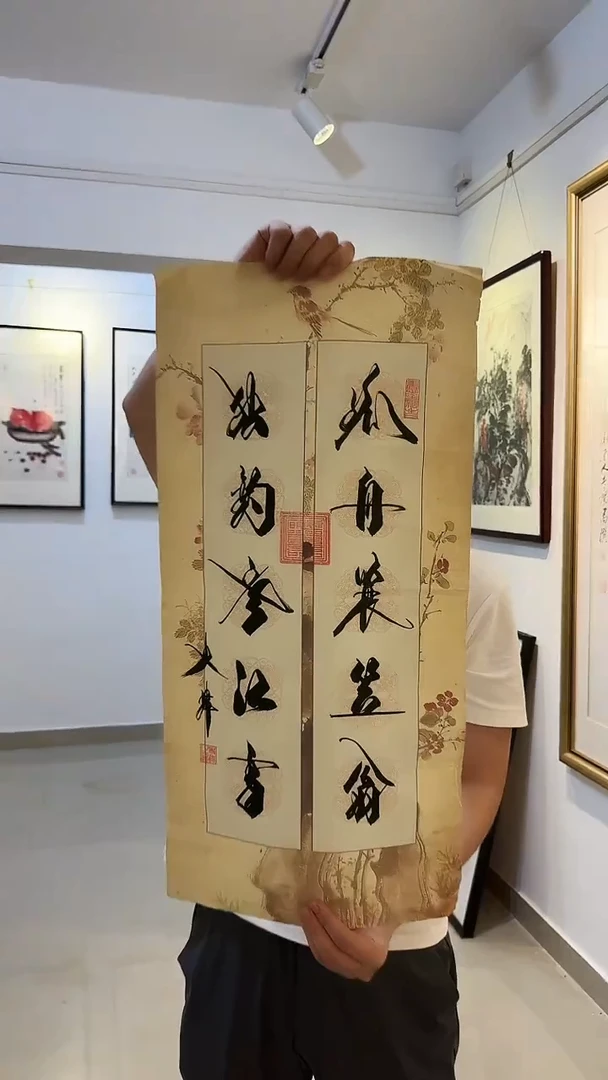 孤舟蓑笠翁
独钓寒江雪
大峰